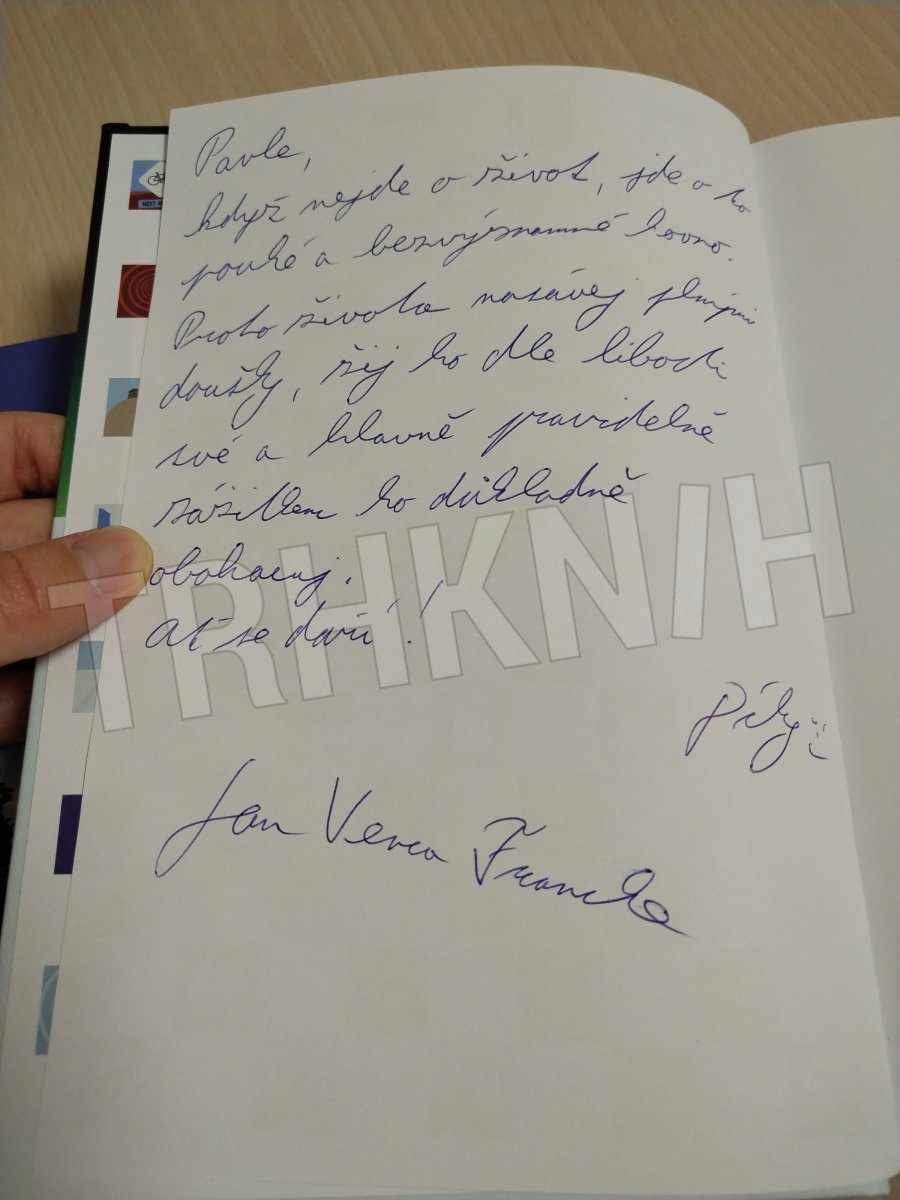 Pavle,
když nejde o život, jde o to
pouhé a bezvýznamné hovno.
Proto života nasávej plnými
doušky, žij ho dle libosti
své a hlavně pravidelně
zážitkem ho důkladně
obohacuj.
Ať se daří!
Díky
Jan Venca Francke
TRHKNIH
NEXT